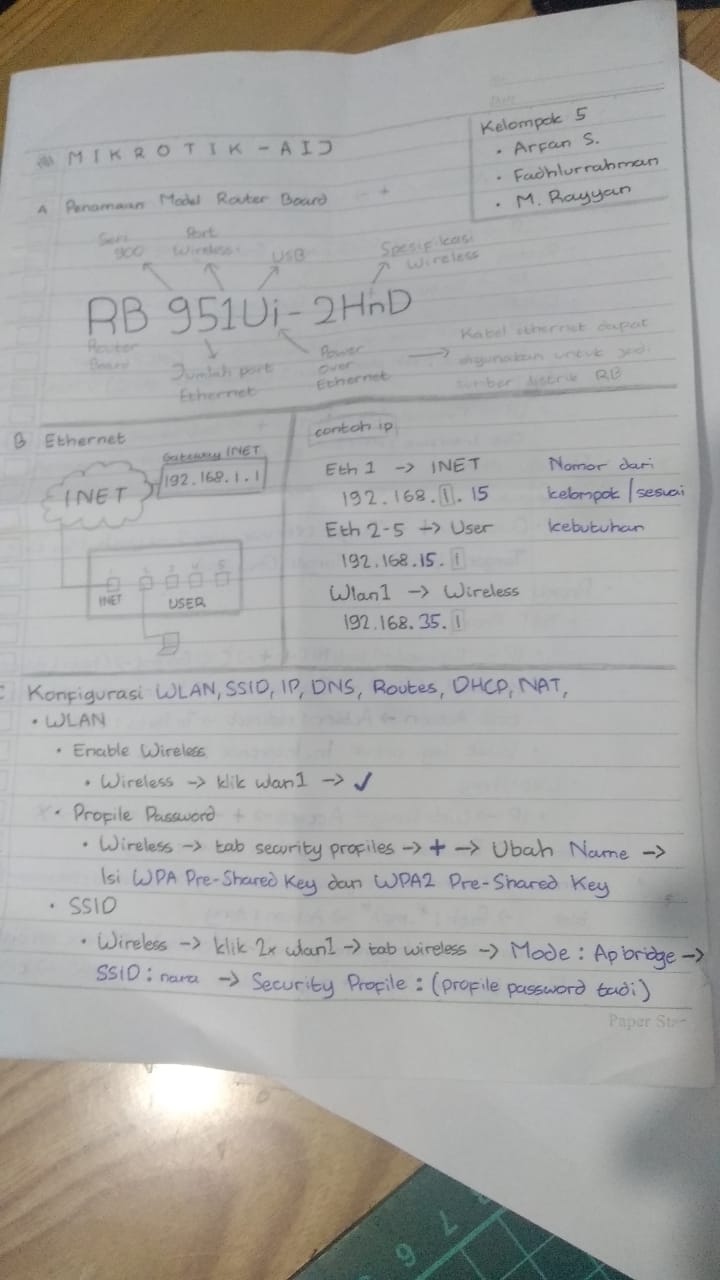 MIKROTIK-AIJ
Kelompok 5
• Arfan S.
• Fadhlurrahman
• M. Rayyan
A Penamaan Model Router Board
Seri 900
Port Wireless
USB
Spesifikasi Wireless
RB 951Ui-2HnD
Router Board
Jumlah port Ethernet
Power over Ethernet
→ Kabel ethernet dapat
digunakan untuk jadi
sumber listrik RB
B Ethernet
Gateway INET
192.168.1.1
INET
1 2 3 4 5
INET
USER
contoh ip
Eth 1 -> INET
192.168.1.15
Eth 2-5 -> User
192.168.15.1
Wlan1 -> Wireless
192.168.35.1
Nomor dari
kelompok/sesuai
kebutuhan
C Konfigurasi WLAN, SSID, IP, DNS, Routes, DHCP, NAT,
• WLAN
• Enable Wireless
• Wireless -> klik wlan1 -> ✓
• Profile Password
• Wireless -> tab security profiles -> + -> Ubah Name ->
Isi WPA Pre-Shared Key dan WPA2 Pre-Shared Key
• SSID
• Wireless -> klik 2x wlan1 -> tab wireless -> Mode : Ap bridge ->
SSID : nara -> Security Profile : (profile password tadi)